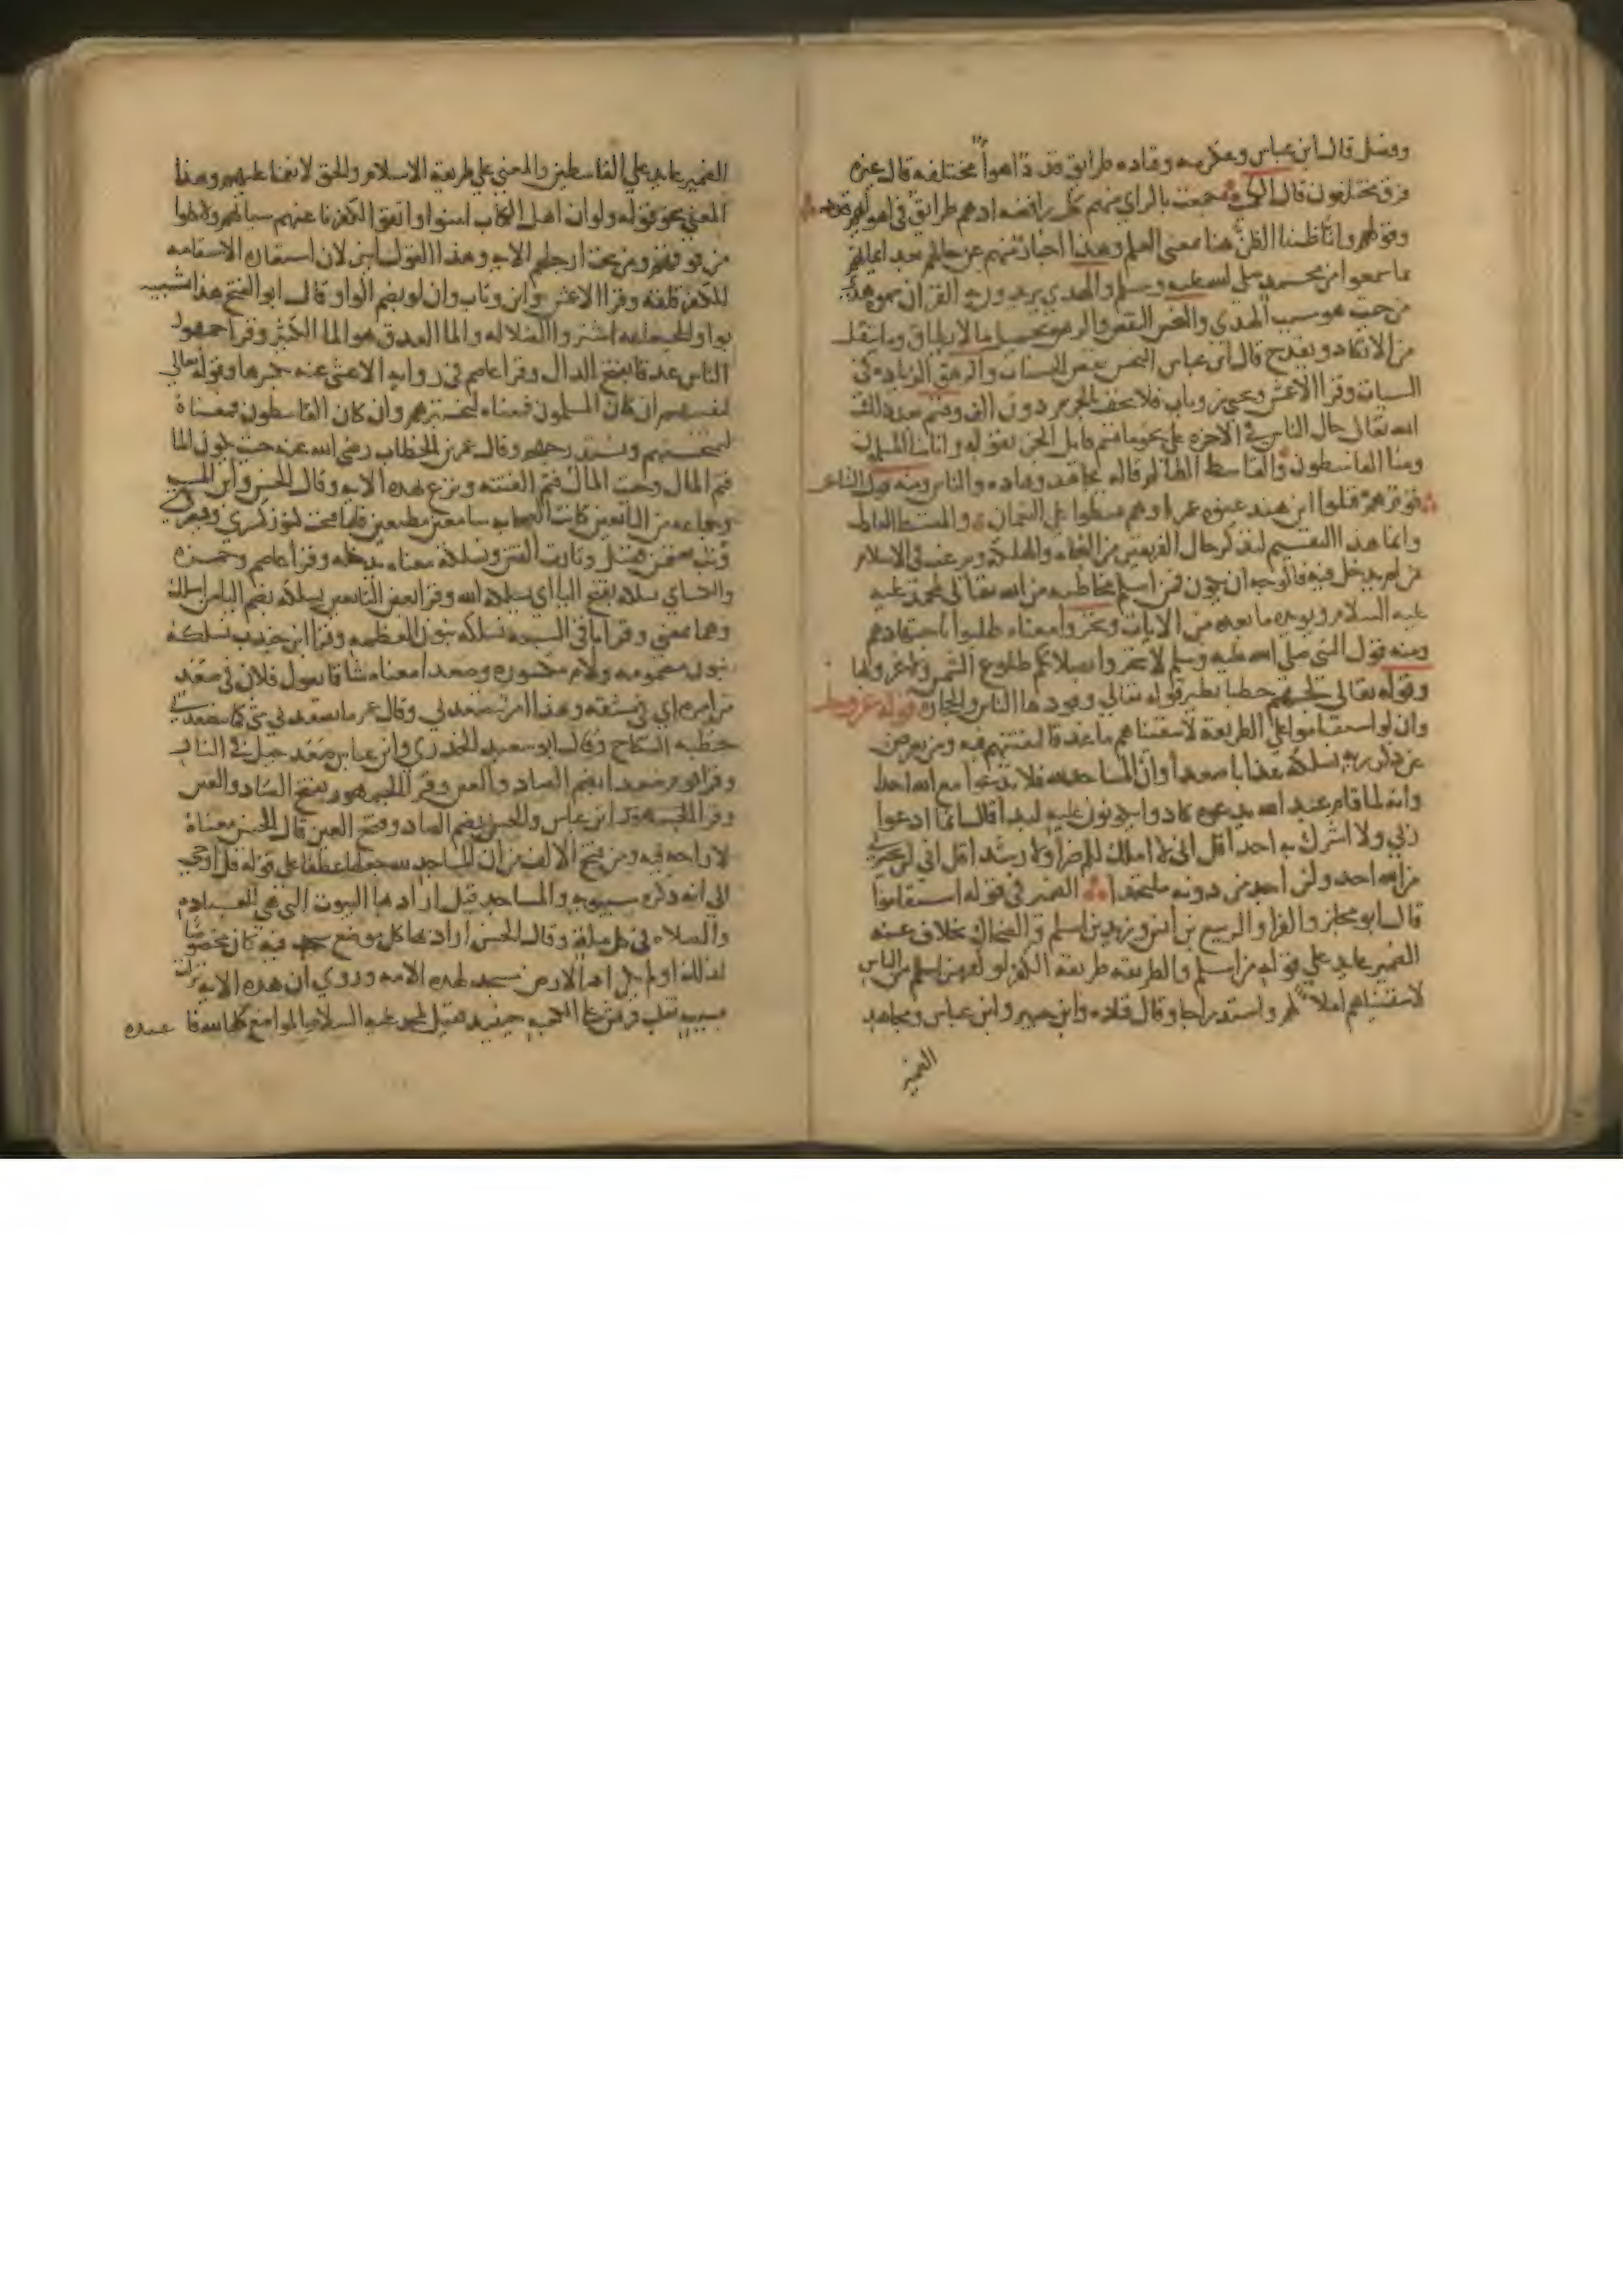 وفضل قال ابن عباس وعكرمه وقتاده طرايق قددا اهوا مختلفه قال غيره
فرق مختلفون قال
وقولهم وانا ظننا الظن هنا بمعنى العلم وهذا اخبار منهم عن حالهم بعد ايمانهم
بما سمعوا من محمد صلى الله عليه وسلم والهدي يريدون به القران سموه هدي
من حيث هو سبب الهدي والبخس النقص والرهق تحميل ما لا يطاق وما يثقل
من الانكاد ويفدح قال ابن عباس البخس نقص الحسنات والرهق الزياده في
السيات وقرا الاعمش ويحيى بن وثاب فلا يخف بالجزم دون الف وقسم بعد ذلك
الله تعالى حال الناس في الاخره على نحو ما قسم قايل الجن بقوله وانا منا المسلمون
ومنا القاسطون والقاسط الظالم قاله مجاهد وقتاده والناس ومنه قول الشاعر
قوم هم قتلوا ابن هند عنوه عمرا وهم قسطوا على النعمان والمقسط العادل
وانما هذا التقسيم ليذكر حال الفريقين من النجاه والهلكه ويرغب في الاسلام
من لم يدخل فيه فالوجه ان يكون فمن اسلم مخاطبه من الله تعالى لمحمد عليه
عليه السلام ويويده ما بعده من الايات وتحروا معناه طلبوا باجتهادهم
ومنه قول النبي صلى الله عليه وسلم لا تتحروا بصلاتكم طلوع الشمس ولا غروبها
وقوله تعالى لجهنم حطبا نظير قوله تعالى وقودها الناس والحجاره قوله عز وجل
وان لو استقاموا على الطريقة لاسقيناهم ما غدقا لنفتنهم فيه ومن يعرض
عن ذكر ربه نسلكه عذابا صعدا وان المساجد لله فلا تدعوا مع الله احدا
وانه لما قام عبد الله يدعوه كادوا يكونون عليه لبدا قال انما ادعوا
ربي ولا اشرك به احدا قل اني لا املك لكم ضرا ولا رشدا قل اني لن يجيرني
من الله احد ولن اجد من دونه ملتحدا الضمير في قوله استقاموا
قال ابو مجلز والفرا والربيع بن انس وزيد بن اسلم والضحاك بخلاف عنه
الضمير عايد على قوله من اسلم والطريقه طريقة الكفر لو كفر من اسلم من الناس
لاسقيناهم املا لهم واستدراجا وقال قتاده وابن جبير وابن عباس ومجاهد
الضمير
الضمير عايد على القاسطين والمعنى على طريقة الاسلام والحق لانعمنا عليهم وهذا
المعنى نحو قوله ولو ان اهل الكتاب امنوا واتقوا لكفرنا عنهم سياتهم ولاكلوا
من فوقهم ومن تحت ارجلهم الايه وهذا القول ابين لان استعارة الاستقامه
للكفر قلقه وقرا الاعمش وابن وثاب وان لو بضم الواو قال ابو الفتح هذا تشبيه
بواو الجماعه اشتروا الضلاله والما الغدق هو الما الكثير وقرا جمهور
الناس غدقا بفتح الدال وقرا عاصم في رواية الاعشى عنه بكسرها وقوله تعالى
لنفتنهم ان كان المسلمون فمعناه لنختبرهم وان كان القاسطون فمعناه
لنمتحنهم ونستدرجهم وقال عمر بن الخطاب رضي الله عنه حيث يكون الما
فثم المال وحيث المال فثم الفتنه ونزع بهذه الايه وقال الحسن وابن المسيب
وجماعه من التابعين كانت الصحابه سامعين مطيعين فلما فتحت كنوز كسرى وقيصر
وثب بعثمن فقتل وثارت الفتن ونسلكه معناه ندخله وقرا عاصم وحمزه
والكساي يسلكه بفتح اليا اي يسلكه الله وقرا بعض التابعين يسلكه بضم اليا من اسلك
وهما بمعنى وقرا باقي السبعه نسلكه بنون العظمه وقرا ابن جندب نسلكه
بنون مضمومه ولام مكسوره وصعدا معناه شاقا تقول فلان في صعد
من امره اي في مشقه وهذا امر يتصعدني وقال عمر ما تصعدني شي كما تصعدتني
خطبة النكاح وقال ابو سعيد الخدري وابن عباس صعد جبل في النار
وقرا قوم صعدا بضم الصاد والعين وقرا الجمهور بفتح الصاد والعين
وقرا ابن عباس والحسن بضم الصاد وفتح العين قال الحسن معناه
لا راحه فيه ومن فتح الالف من ان المساجد لله جعلها عطفا على قوله قل اوحي
الي انه ذكره سيبويه والمساجد قيل اراد بها البيوت التي هي للعباده
والصلاه في كل مله وقال الحسن اراد بها كل موضع سجد فيه كان مخصوصا
لذلك او لم يكن اذ الارض مسجد لهذه الامه وروي ان هذه الايه نزلت
بسبب تغلب قريش على الكعبه حينيذ فقيل لمحمد عليه السلام المواضع كلها لله فا عبده